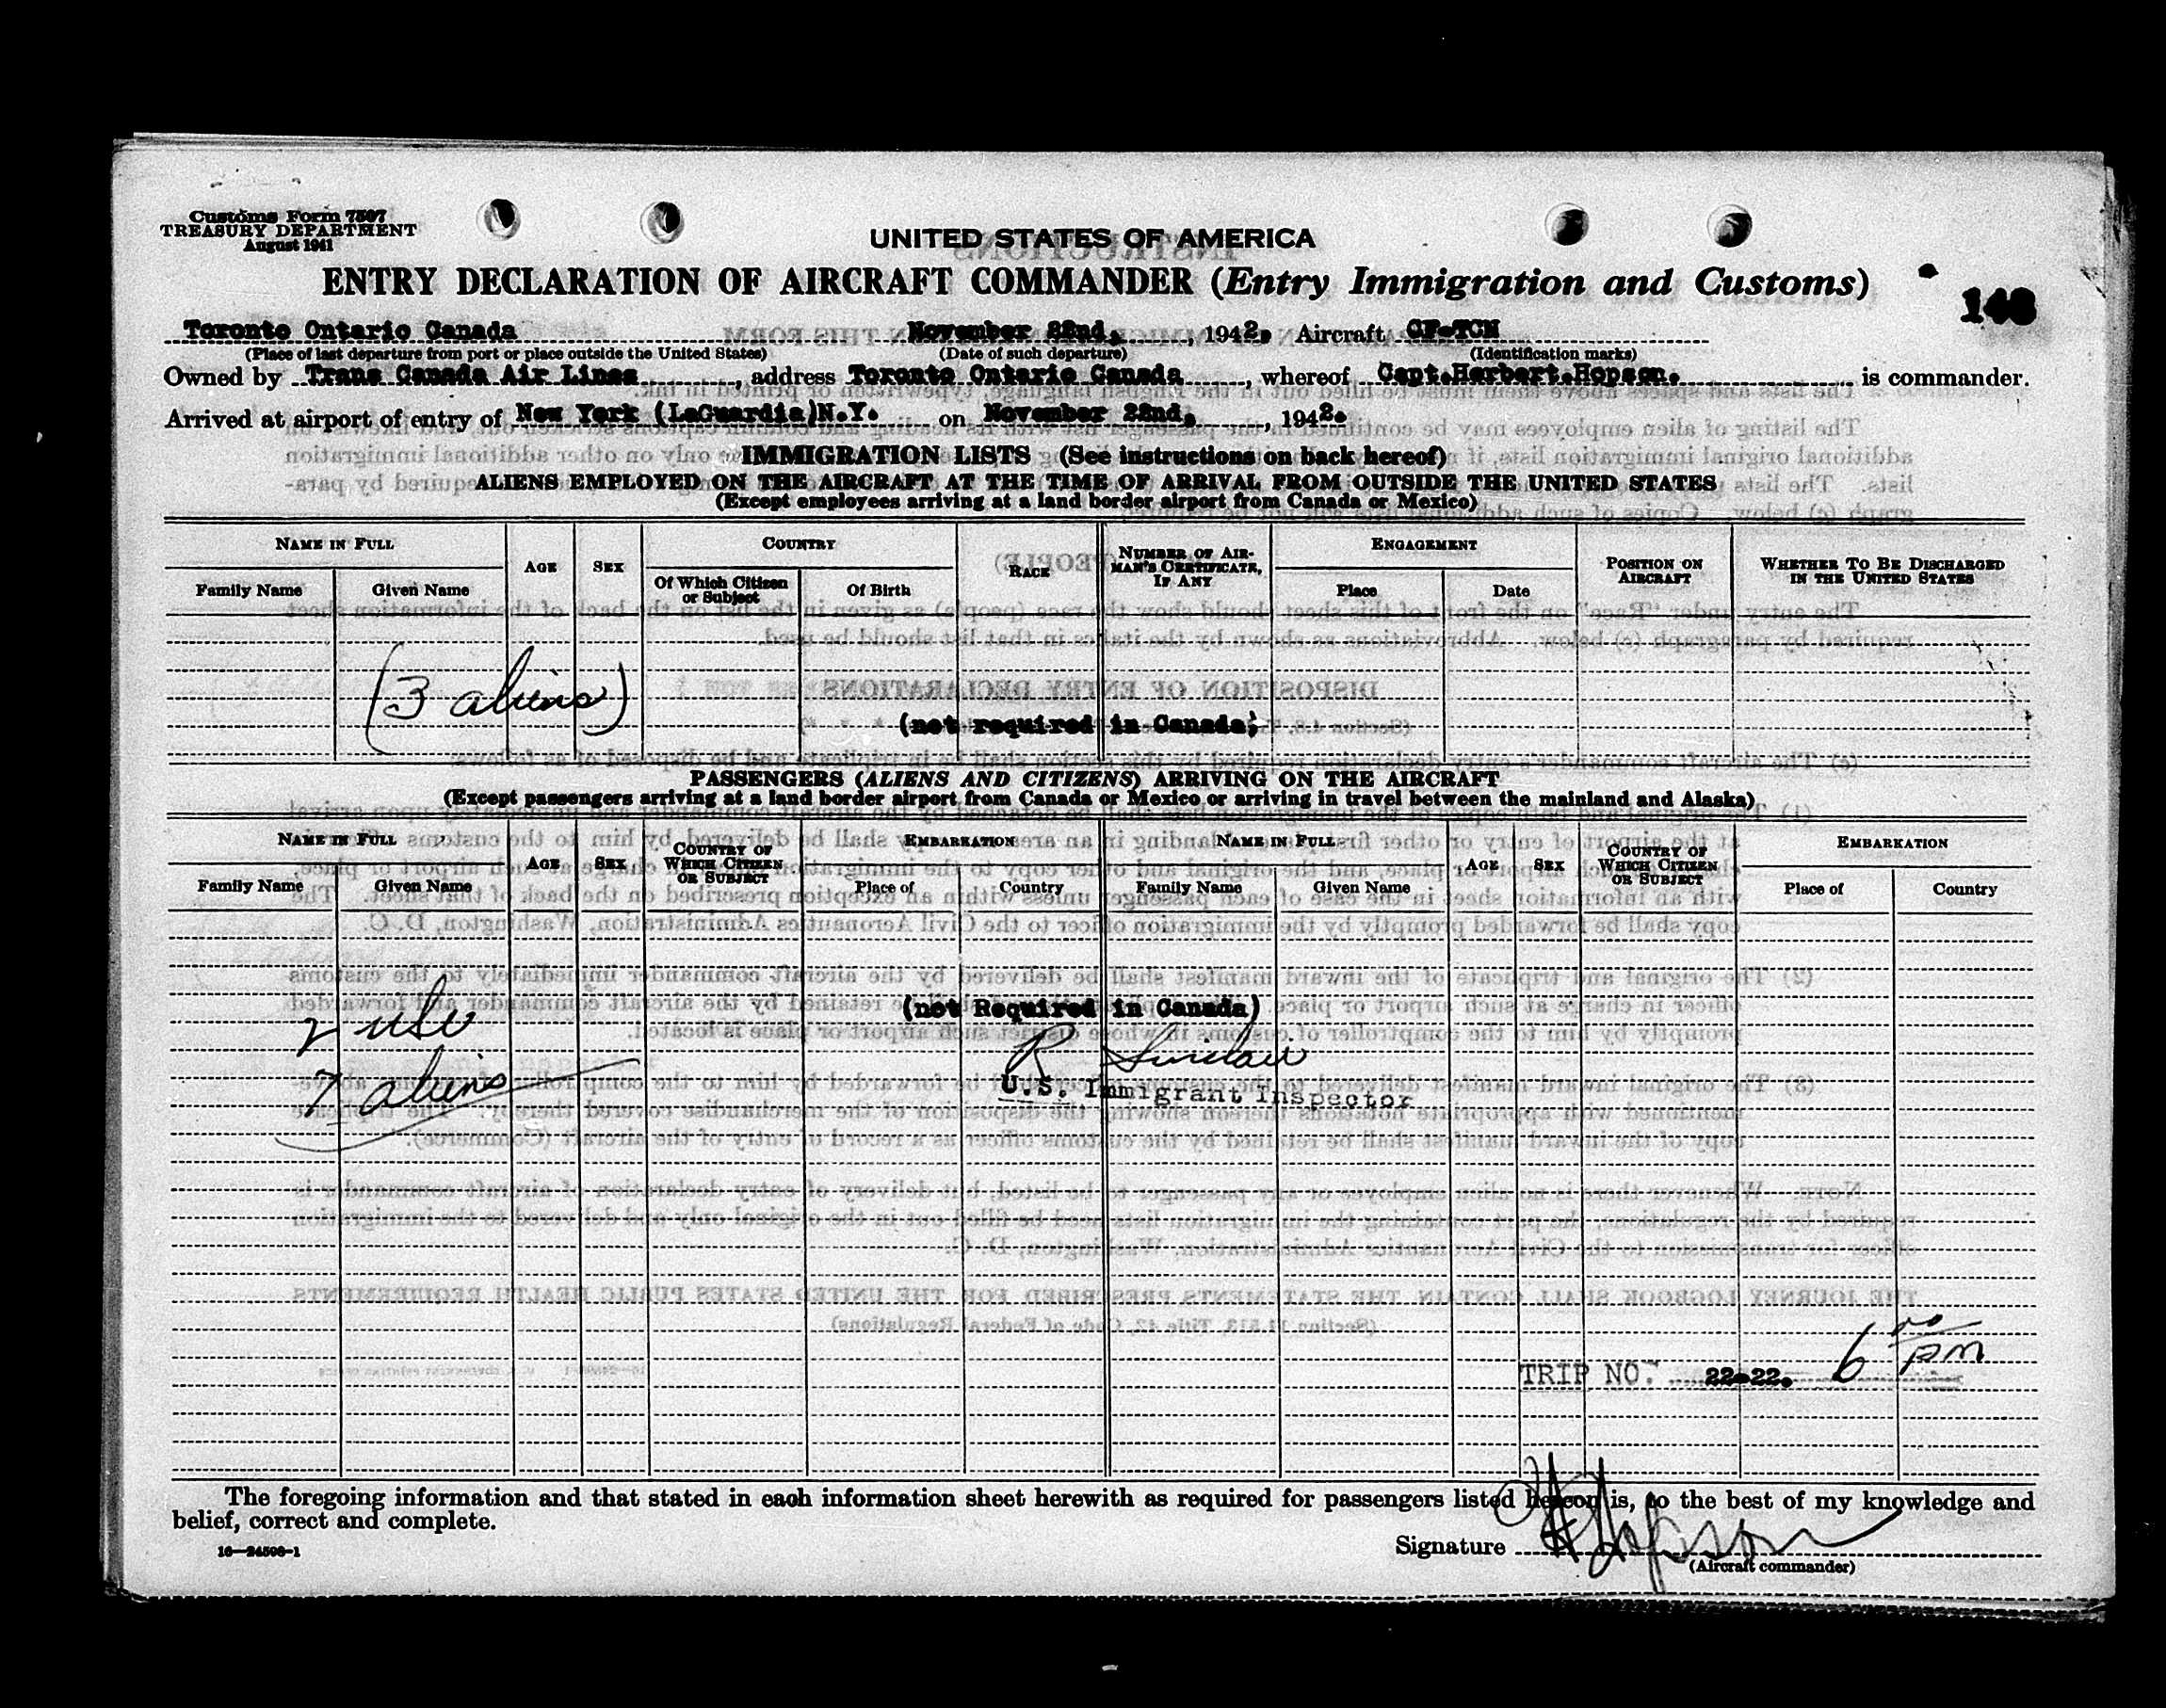 Customs Form 7507
TREASURY DEPARTMENT
August 1941
UNITED STATES OF AMERICA
ENTRY DECLARATION OF AIRCRAFT COMMANDER (Entry Immigration and Customs)
148
Toronto Ontario Canada November 22nd, , 1942. Aircraft CF-TCN
(Place of last departure from port or place outside the United States) (Date of such departure) (Identification marks)
Owned by Trans Canada Air Lines , address Toronto Ontario Canada , whereof Capt.Herbert.Hopson. is commander.
Arrived at airport of entry of New York (LaGuardia)N.Y. on November 22nd, , 1942.
IMMIGRATION LISTS (See instructions on back hereof)
ALIENS EMPLOYED ON THE AIRCRAFT AT THE TIME OF ARRIVAL FROM OUTSIDE THE UNITED STATES
(Except employees arriving at a land border airport from Canada or Mexico)
NAME IN FULL AGE SEX COUNTRY RACE NUMBER OF AIRMAN'S CERTIFICATE, IF ANY ENGAGEMENT POSITION ON AIRCRAFT WHETHER TO BE DISCHARGED IN THE UNITED STATES
Family Name Given Name Of Which Citizen or Subject Of Birth Place Date
(3 aliens)
(not required in Canada)
PASSENGERS (ALIENS AND CITIZENS) ARRIVING ON THE AIRCRAFT
(Except passengers arriving at a land border airport from Canada or Mexico or arriving in travel between the mainland and Alaska)
NAME IN FULL AGE SEX COUNTRY OF WHICH CITIZEN OR SUBJECT EMBARKATION NAME IN FULL AGE SEX COUNTRY OF WHICH CITIZEN OR SUBJECT EMBARKATION
Family Name Given Name Place of Country Family Name Given Name Place of Country
(not Required in Canada)
2 usc
R Sinclair
7 aliens
U.S. Immigrant Inspector
TRIP NO. 22-22. 6 00 pm
The foregoing information and that stated in each information sheet herewith as required for passengers listed hereon is, to the best of my knowledge and
belief, correct and complete.
16—24598-1
Signature H Hopson
(Aircraft commander)